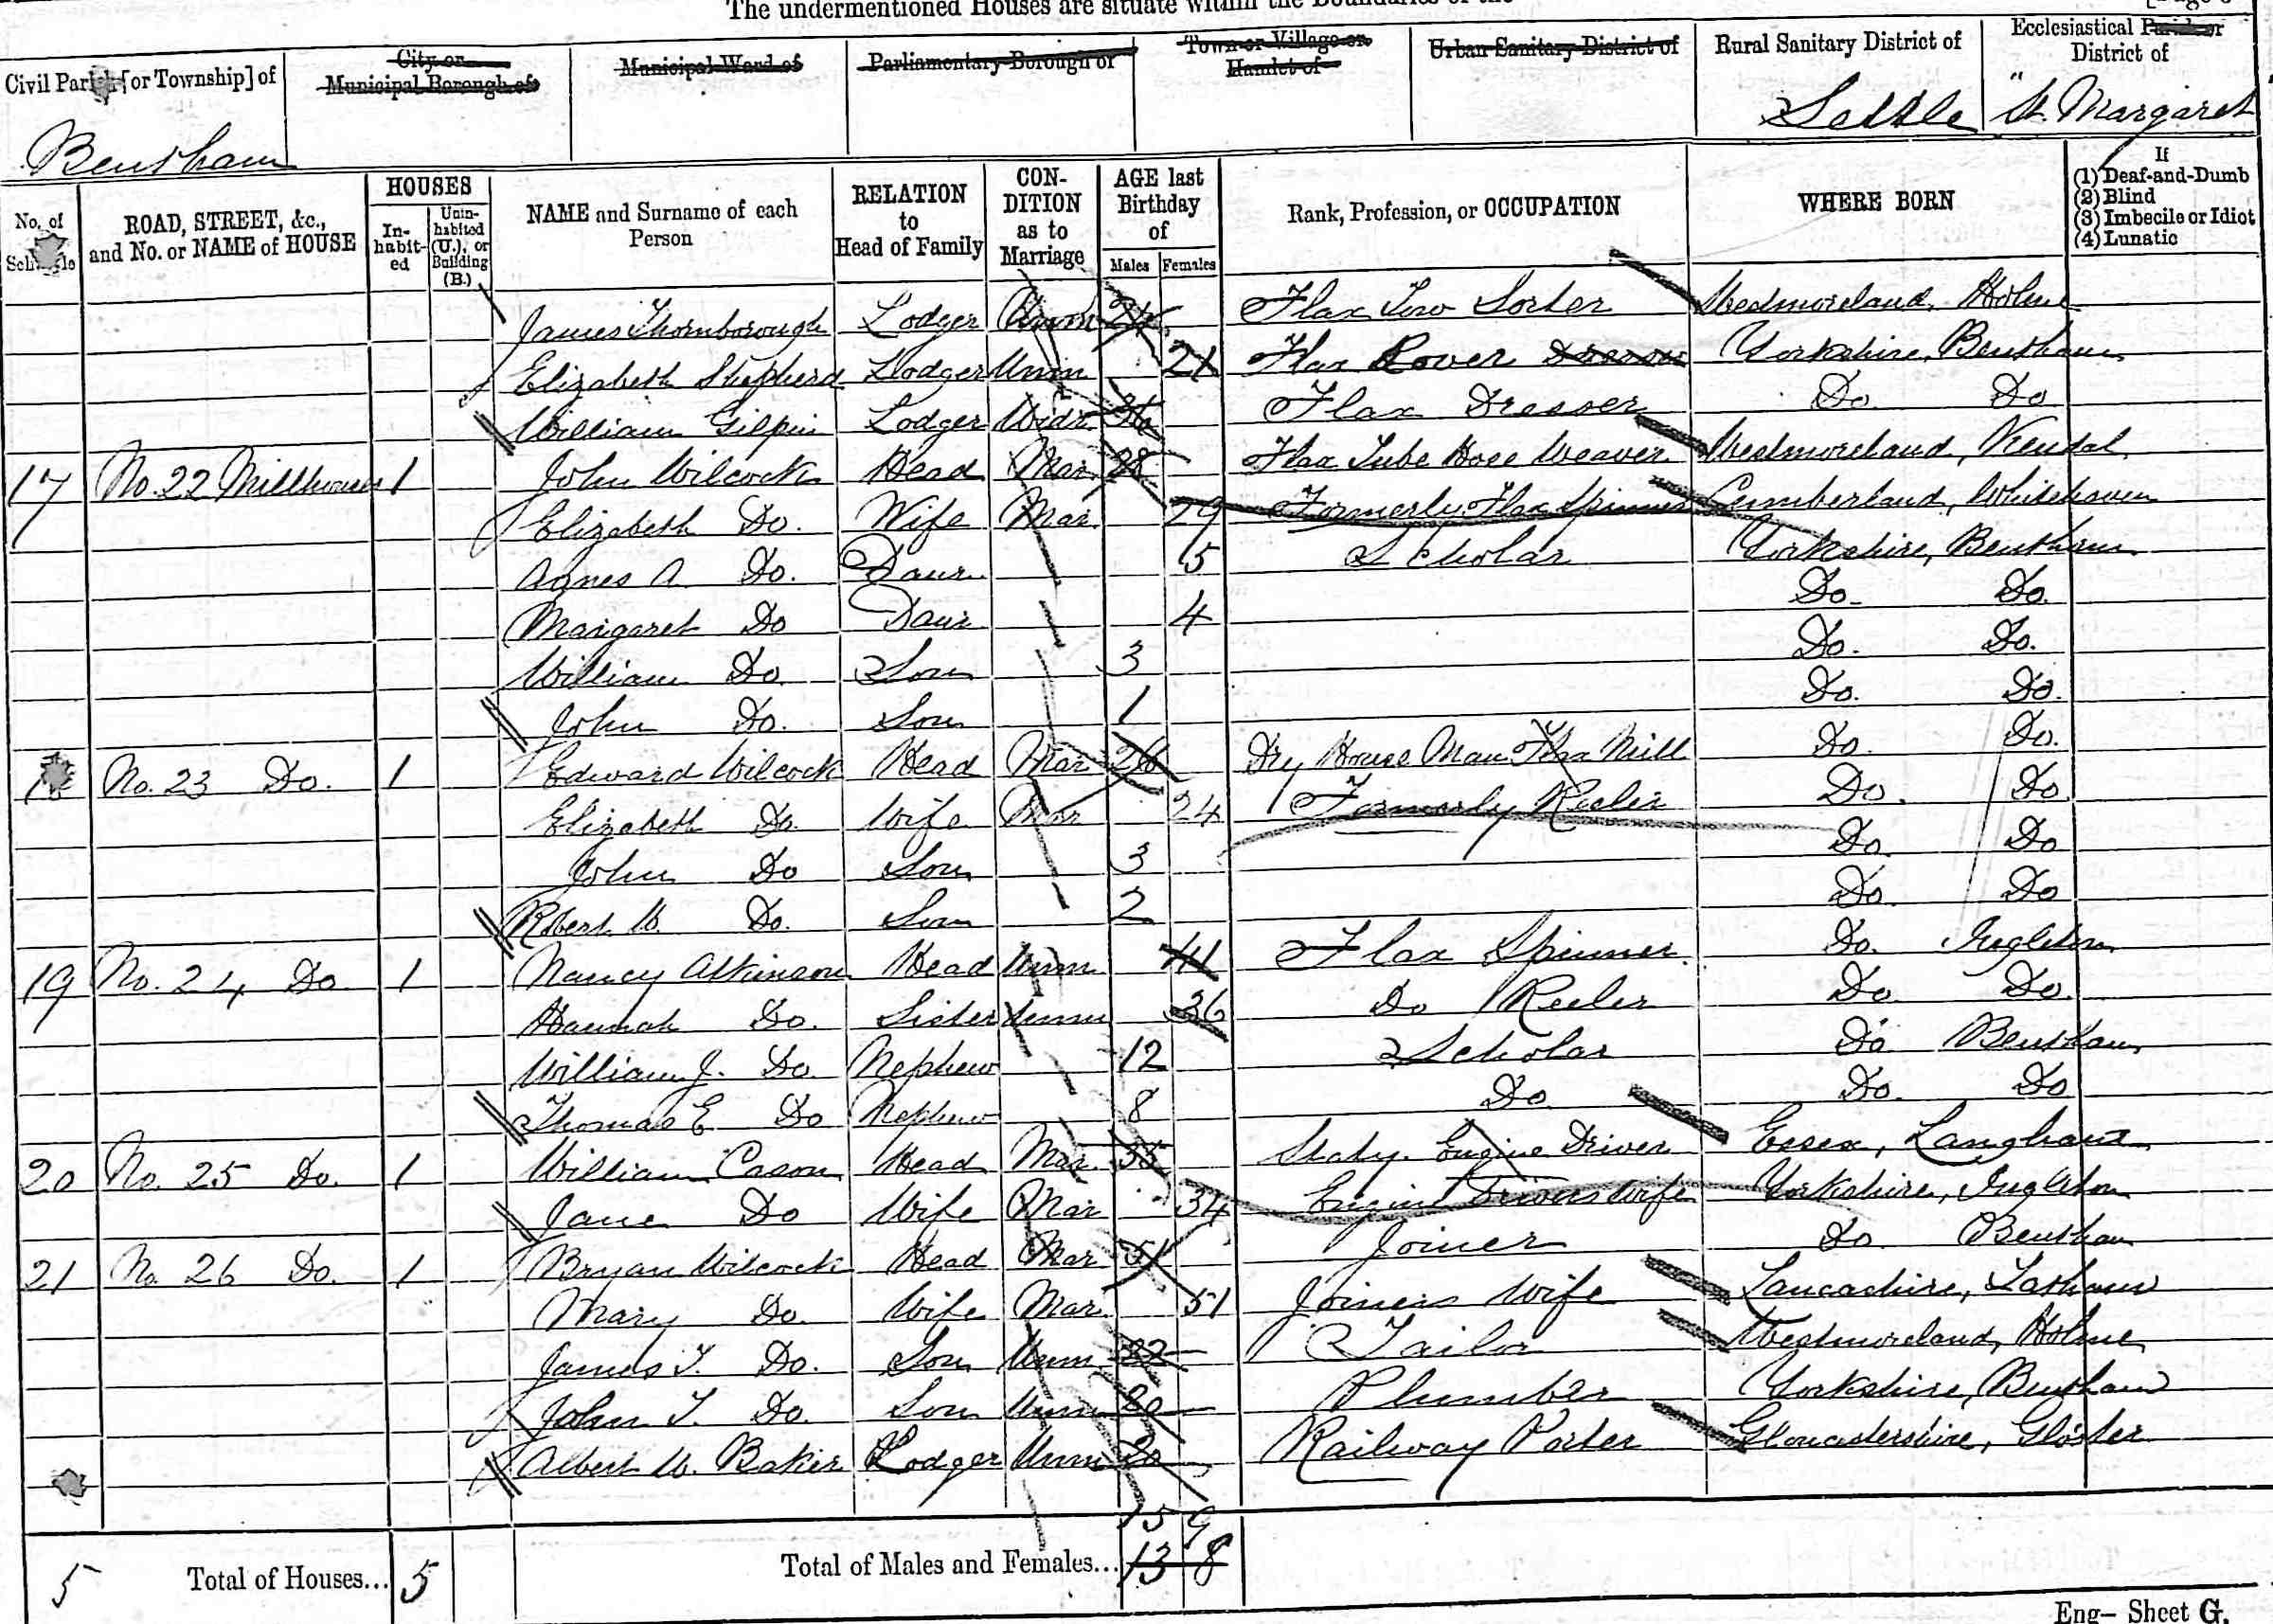 The undermentioned Houses are situate within the Boundaries of the
Civil Parish [or Township] of
City or Municipal Borough of
Municipal Ward of
Parliamentary Borough of
Town or Village or Hamlet of
Urban Sanitary District of
Rural Sanitary District of
Ecclesiastical Parish or District of
Bentham Settle St. Margaret
No. of Schedule
ROAD, STREET, &c., and No. or NAME of HOUSE
HOUSES
In-habit-ed
Unin-habited (U.), or Building (B.)
NAME and Surname of each Person
RELATION to Head of Family
CON-DITION as to Marriage
AGE last Birthday of
Males Females
Rank, Profession, or OCCUPATION
WHERE BORN
If
(1) Deaf-and-Dumb
(2) Blind
(3) Imbecile or Idiot
(4) Lunatic
James Thornborough Lodger Unm Flax Tow Sorter Westmoreland, Holme
Elizabeth Shepherd Lodger Unm 21 Flax Rover Dresser Yorkshire, Bentham
William Gilpin Lodger Widr Flax Dresser Do Do
17 No. 22 Millhouses 1 John Wilcock Head Mar 28 Flax Tube Hose Weaver Westmoreland, Kendal
Elizabeth Do. Wife Mar 29 Formerly Flax Spinner Cumberland, Whitehaven
Agnes A. Do. Daur 5 Scholar Yorkshire, Bentham
Margaret Do Daur 4 Do. Do.
William Do. Son 3 Do. Do.
John Do. Son 1 Do. Do.
No. 23 Do. 1 Edward Wilcock Head Mar 26 Dry House Man Flax Mill Do. Do.
Elizabeth Do. Wife Mar 24 Formerly Reeler Do. Do.
John Do Son 3 Do. Do
Robert W. Do. Son 2 Do. Do
19 No. 24 Do 1 Nancy Atkinson Head Unm 41 Flax Spinner Do. Ingleton
Hannah Do. Sister Unm 36 Do Reeler Do Do.
William J. Do. Nephew 12 Scholar Do Bentham
Thomas E Do Nephew 8 Do Do. Do
20 No. 25 Do. 1 William Cason Head Mar 35 Staty. Engine Driver Essex, Langham
Jane Do Wife Mar 34 Engine Drivers Wife Yorkshire, Ingleton
21 No. 26 Do. 1 Bryan Wilcock Head Mar 51 Joiner Do. Bentham
Mary Do. Wife Mar. 51 Joiners Wife Lancashire, Tatham
James T. Do. Son Unm 22 Tailor Westmoreland, Holme
John T. Do. Son Unm 20 Plumber Yorkshire, Bentham
Albert W. Baker Lodger Unm 20 Railway Porter Gloucestershire, Gloster
15 9
5 Total of Houses... 5 Total of Males and Females... 13 8
Eng— Sheet G.